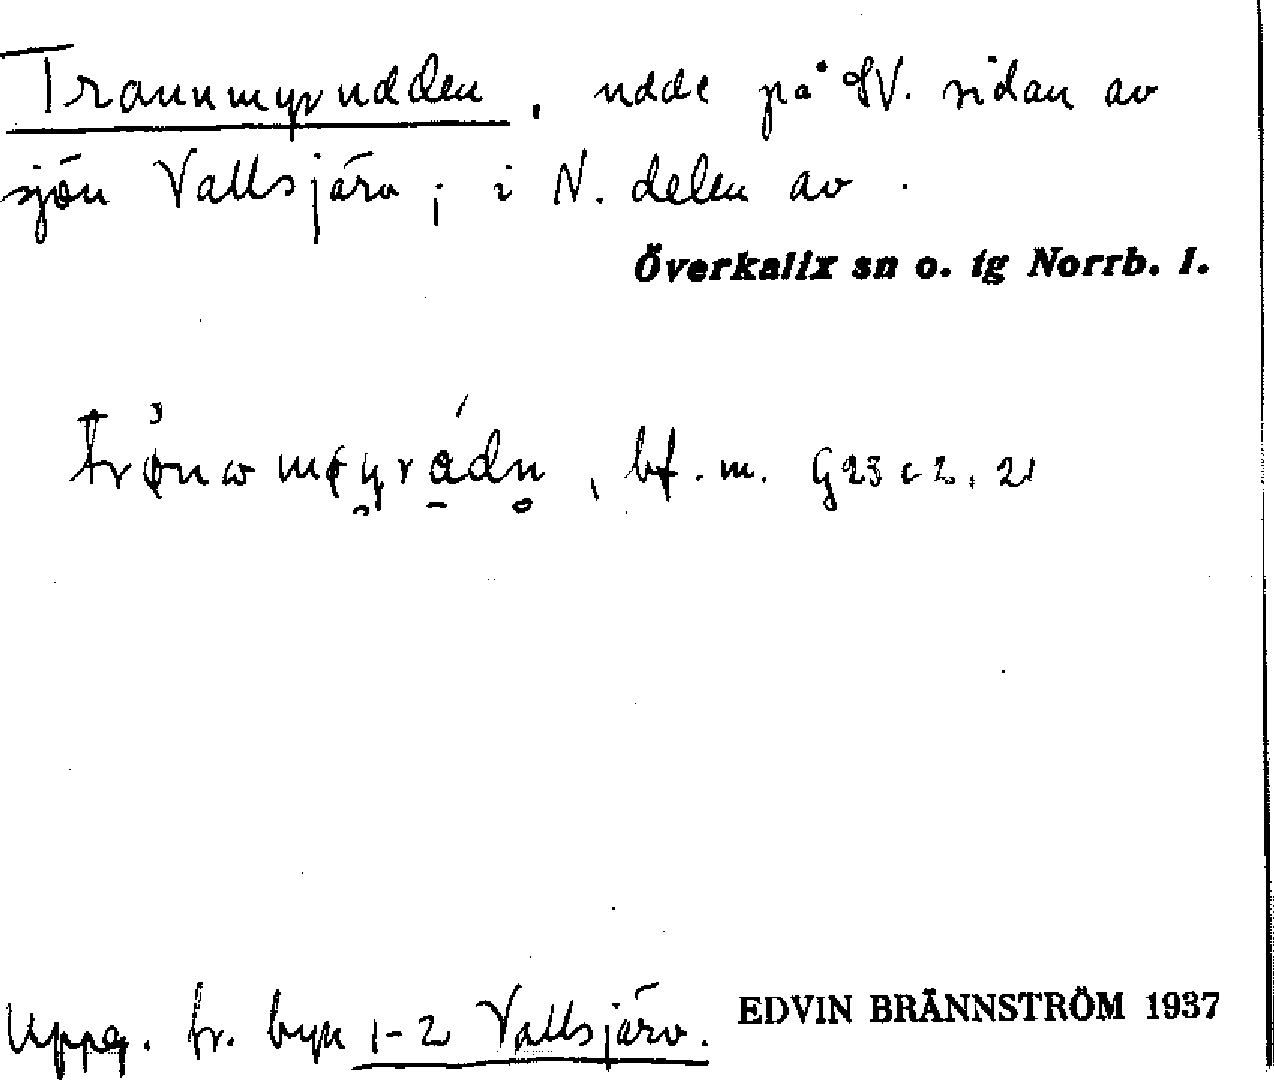 Trannmyrudden, udde på SV. sidan av
sjön Vallsjärv; i N. delen av
Överkalix sn o. tg Norrb. l.
bf. m.
Uppg. fr. byn 1-2 Vallsjärv.
EDVIN BRÄNNSTRÖM 1937